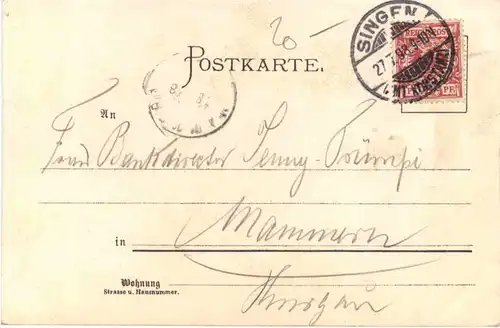 20-
POSTKARTE.
SINGEN
27.7.98.9-10V.
REICHSPOST
An
Frau Bankdirector Jenny-Trümpi
in Mammern
Wohnung
Strasse u. Hausnummer.
Thurgau